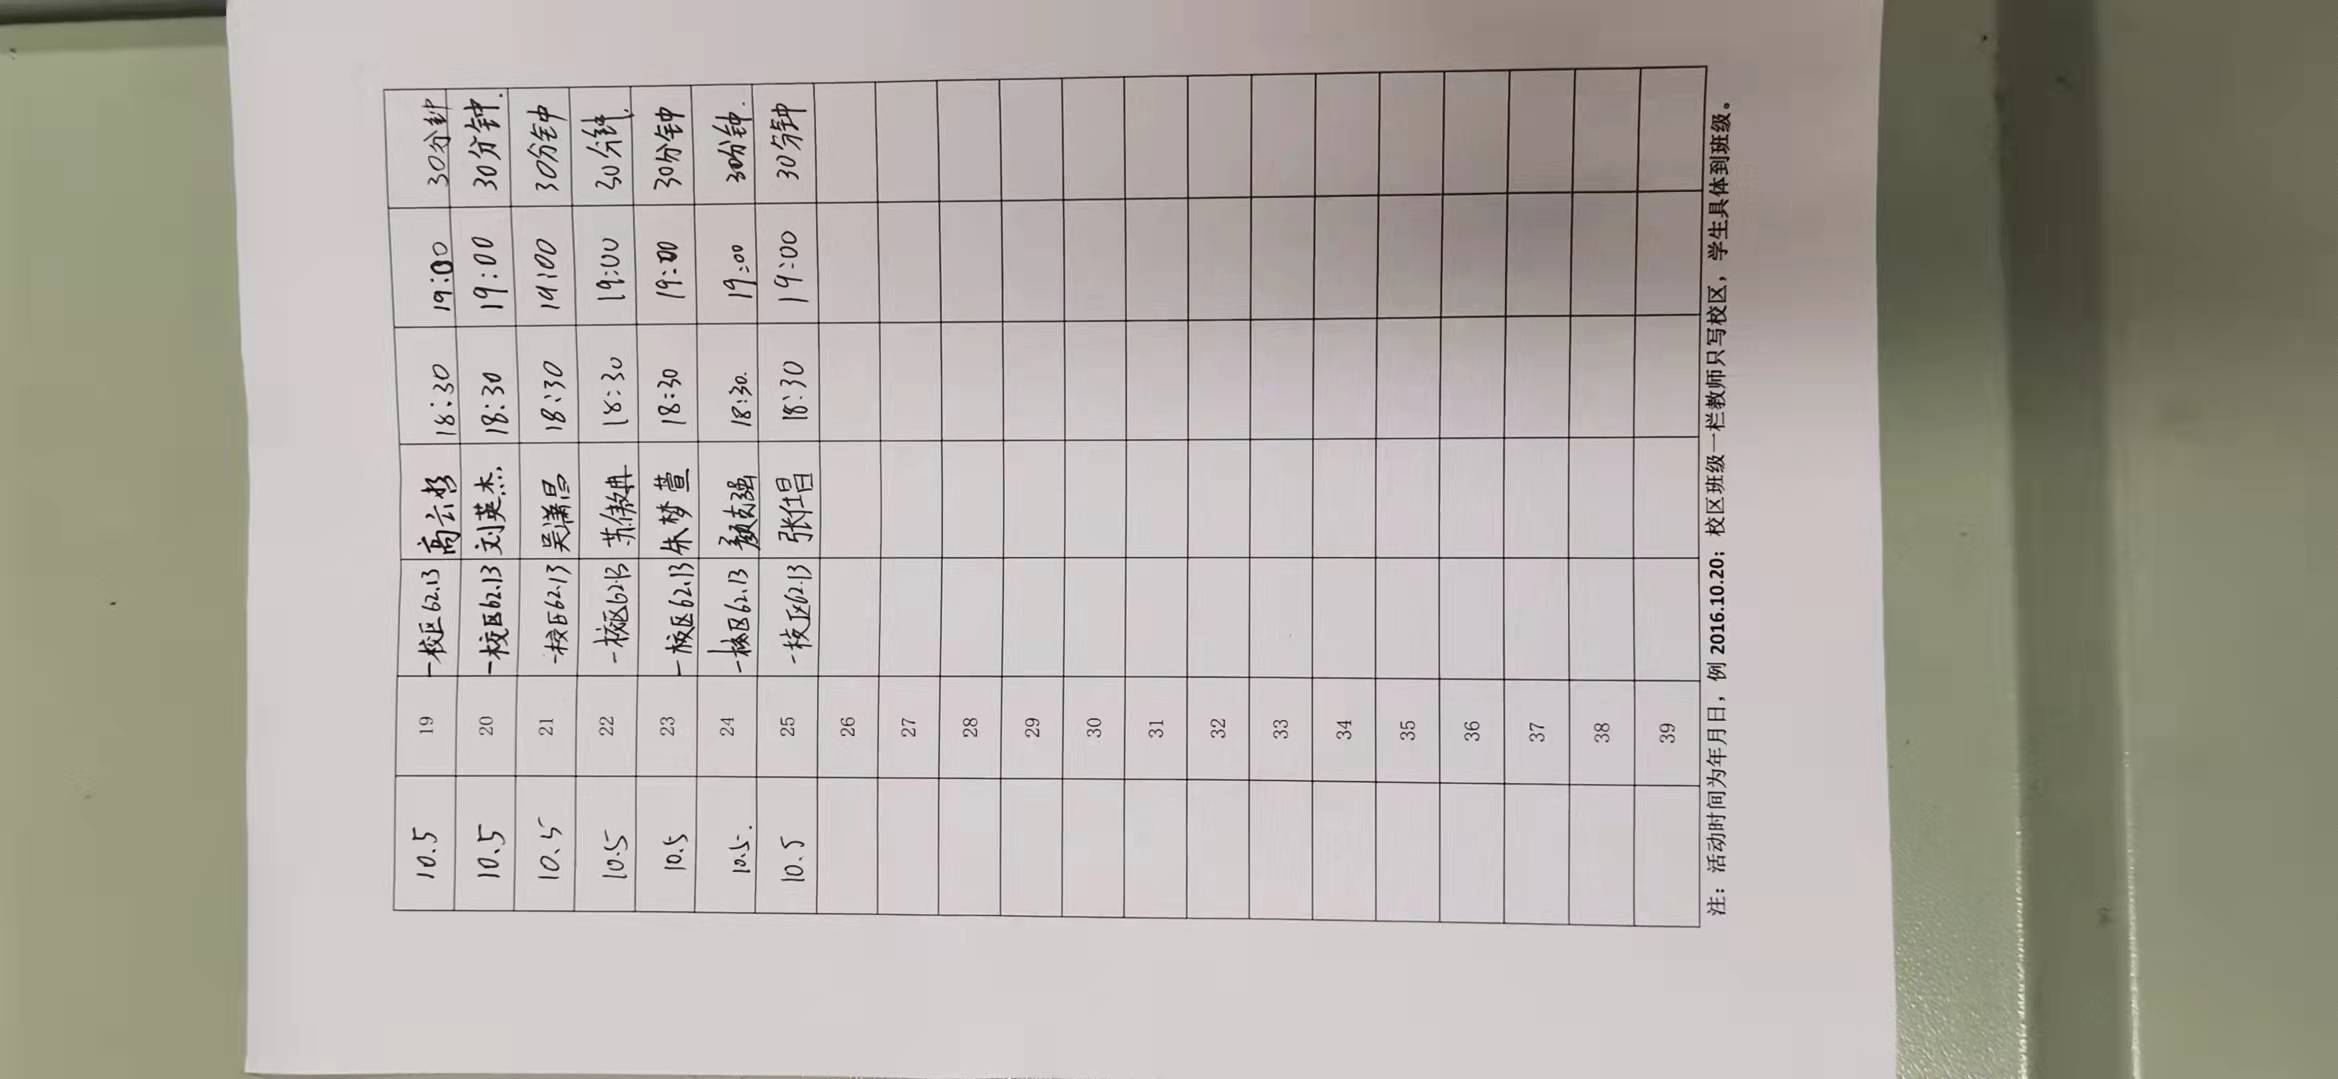 10.5 19 一校区62.13 高云哲 18:30 19:00 30分钟
10.5 20 一校区62.13 刘英杰 18:30 19:00 30分钟.
10.5 21 一校区62.13 吴潇昌 18:30 19:00 30分钟
10.5 22 一校区62.13 苏傲冉 18:30 19:00 30分钟.
10.5 23 一校区62.13 朱梦萱 18:30 19:00 30分钟
10.5. 24 一校区62.13 颜志强 18:30. 19:00 30分钟.
10.5 25 一校区62.13 张仕昌 18:30 19:00 30分钟
26
27
28
29
30
31
32
33
34
35
36
37
38
39
注：活动时间为年月日，例 2016.10.20；校区班级一栏教师只写校区，学生具体到班级。